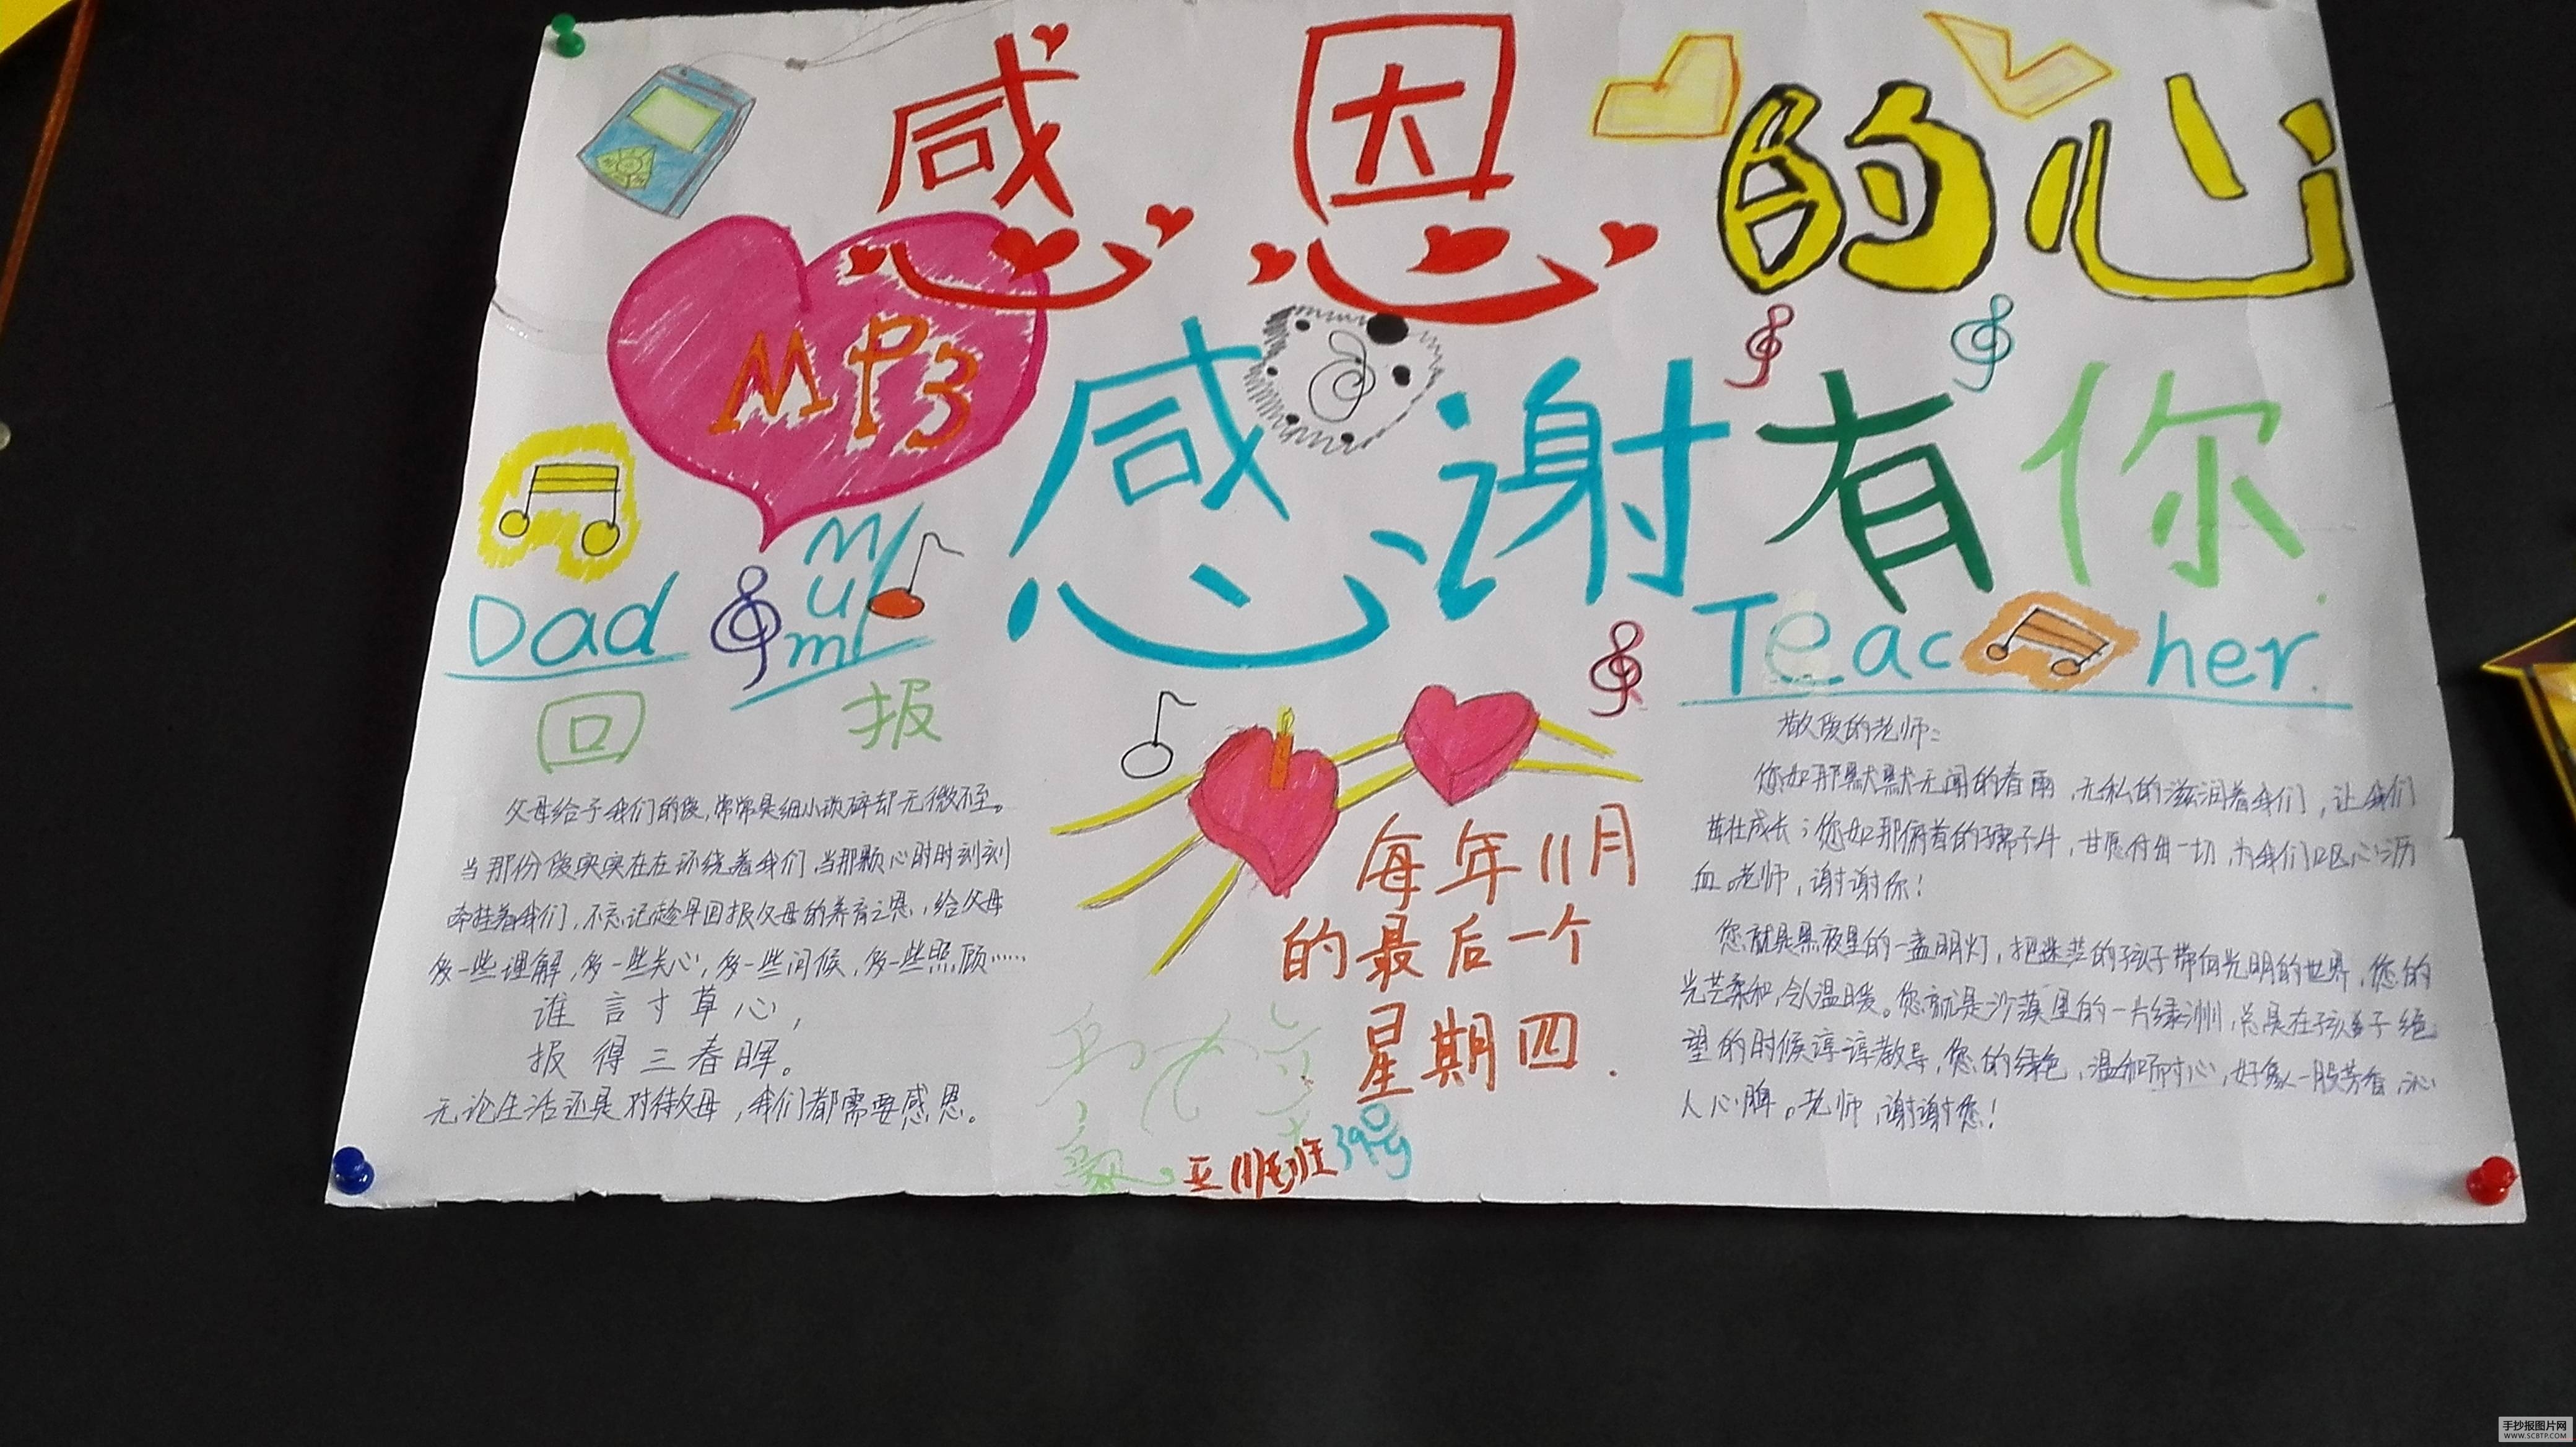 感恩的心
MP3
感谢有你
Dad
Mum
Teacher.
回报
父母给予我们的爱,常常是细小琐碎却无微不至。
当那份爱实实在在环绕着我们,当那颗心时时刻刻
牵挂着我们,不忘记趁早回报父母的养育之恩,给父母
多一些理解,多一些关心,多一些问候,多一些照顾……
谁言寸草心,
报得三春晖。
无论生活还是对待父母,我们都需要感恩。
每年11月
的最后一个
星期四.
39号
敬爱的老师:
您如那默默无闻的春雨,无私的滋润着我们,让我们
茁壮成长;您如那俯首的孺子牛,甘愿付出一切,为我们呕心沥
血。老师,谢谢你!
您就是黑夜里的一盏明灯,把迷茫的孩子带向光明的世界,您的
光芒柔和,令人温暖。您就是沙漠里的一片绿洲,总是在孩子绝
望的时候谆谆教导,您的绿色,温和而耐心,好象一股芳香,沁
人心脾。老师,谢谢您!
手抄报图片网
WWW.SCBTP.COM